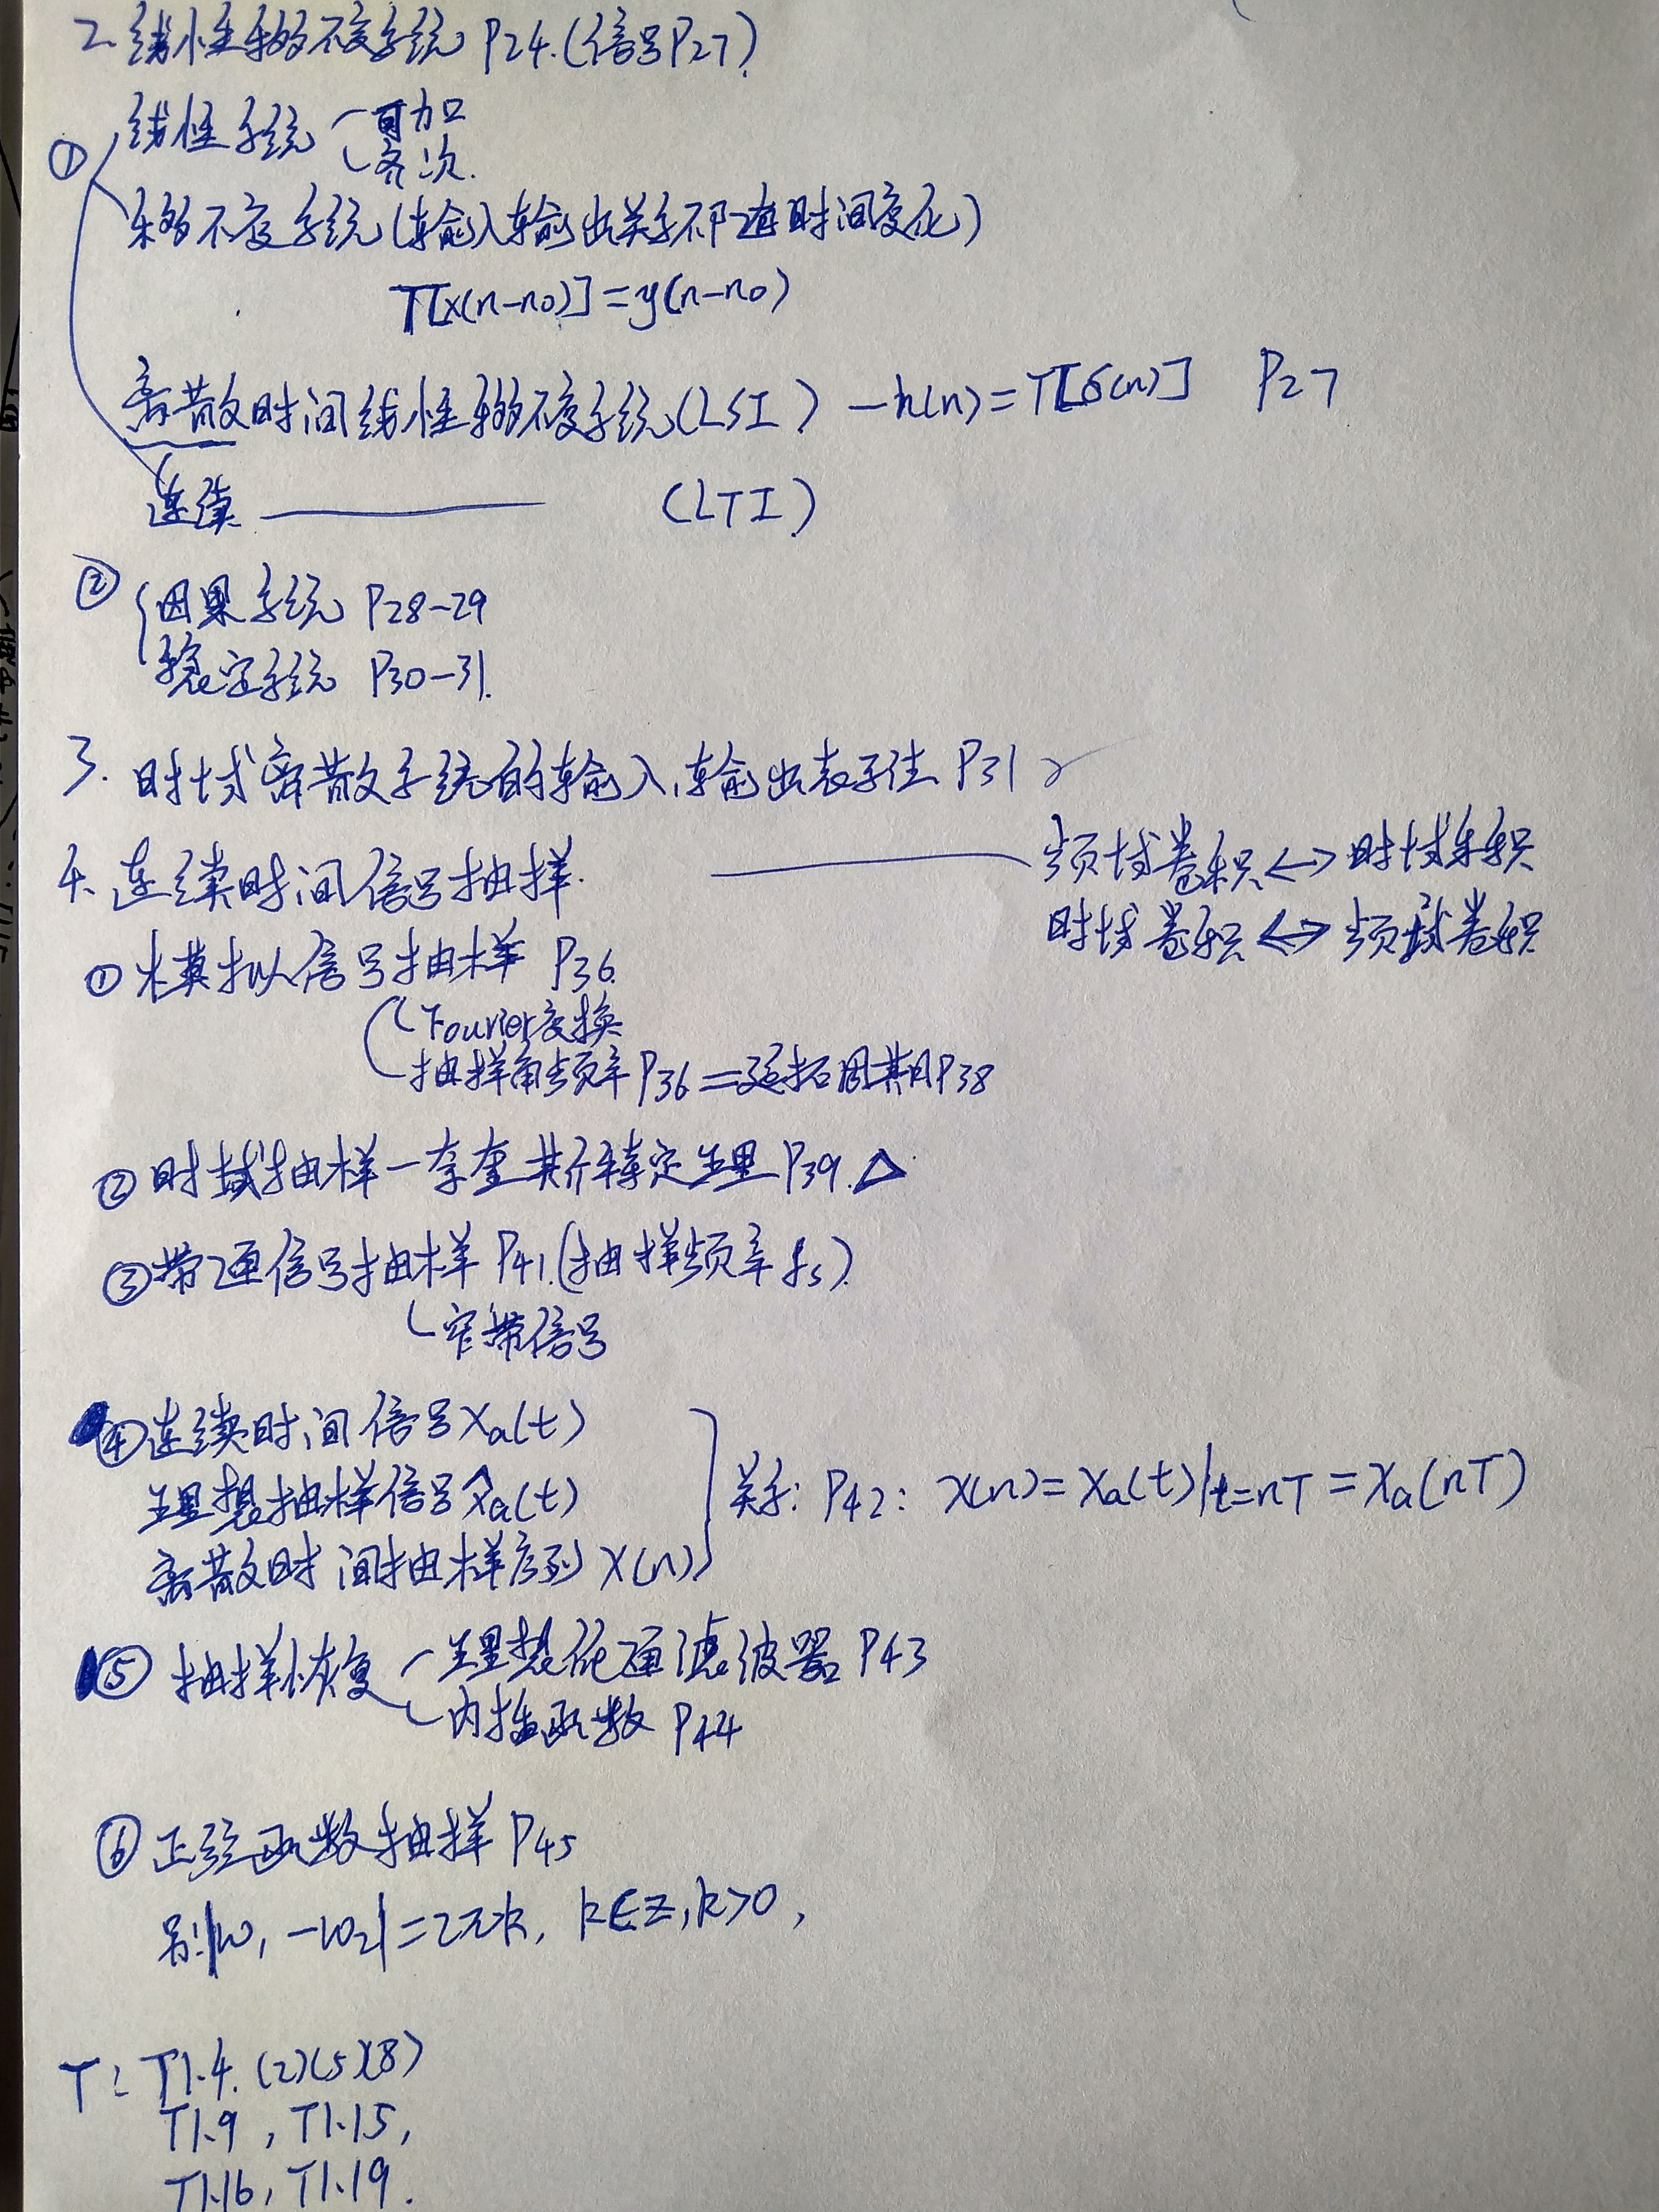 2. 线性移不变系统 P24.(信号P27)
① 线性系统 可加
齐次.
移不变系统(输入输出关系不随时间变化)
T[x(n-n0)]=y(n-n0)
离散时间线性移不变系统(LSI) — h(n)=T[δ(n)] P27
连续 ——— (LTI)
② 因果系统 P28-29
稳定系统 P30-31.
3. 时域离散系统的输入,输出表示法 P31
4. 连续时间信号抽样. ——— 频域卷积<->时域乘积
时域卷积<=>频域卷积
① 模拟信号抽样 P36.
Fourier变换
抽样角频率P36=延拓周期P38
② 时域抽样—奈奎斯特定理P39.△
③ 带通信号抽样 P41.(抽样频率fs).
窄带信号
④ 连续时间信号xa(t)
理想抽样信号x̂a(t) 关系: P42: x(n)=xa(t)|t=nT=xa(nT)
离散时间抽样序列x(n)
⑤ 抽样恢复 理想低通滤波器 P43
内插函数 P44
⑥ 正弦函数抽样 P45
|ω1-ω2|=2πk, k∈Z,k>0,
T: T1.4.(2)(5)(8)
T1.9, T1.15,
T1.16, T1.19.